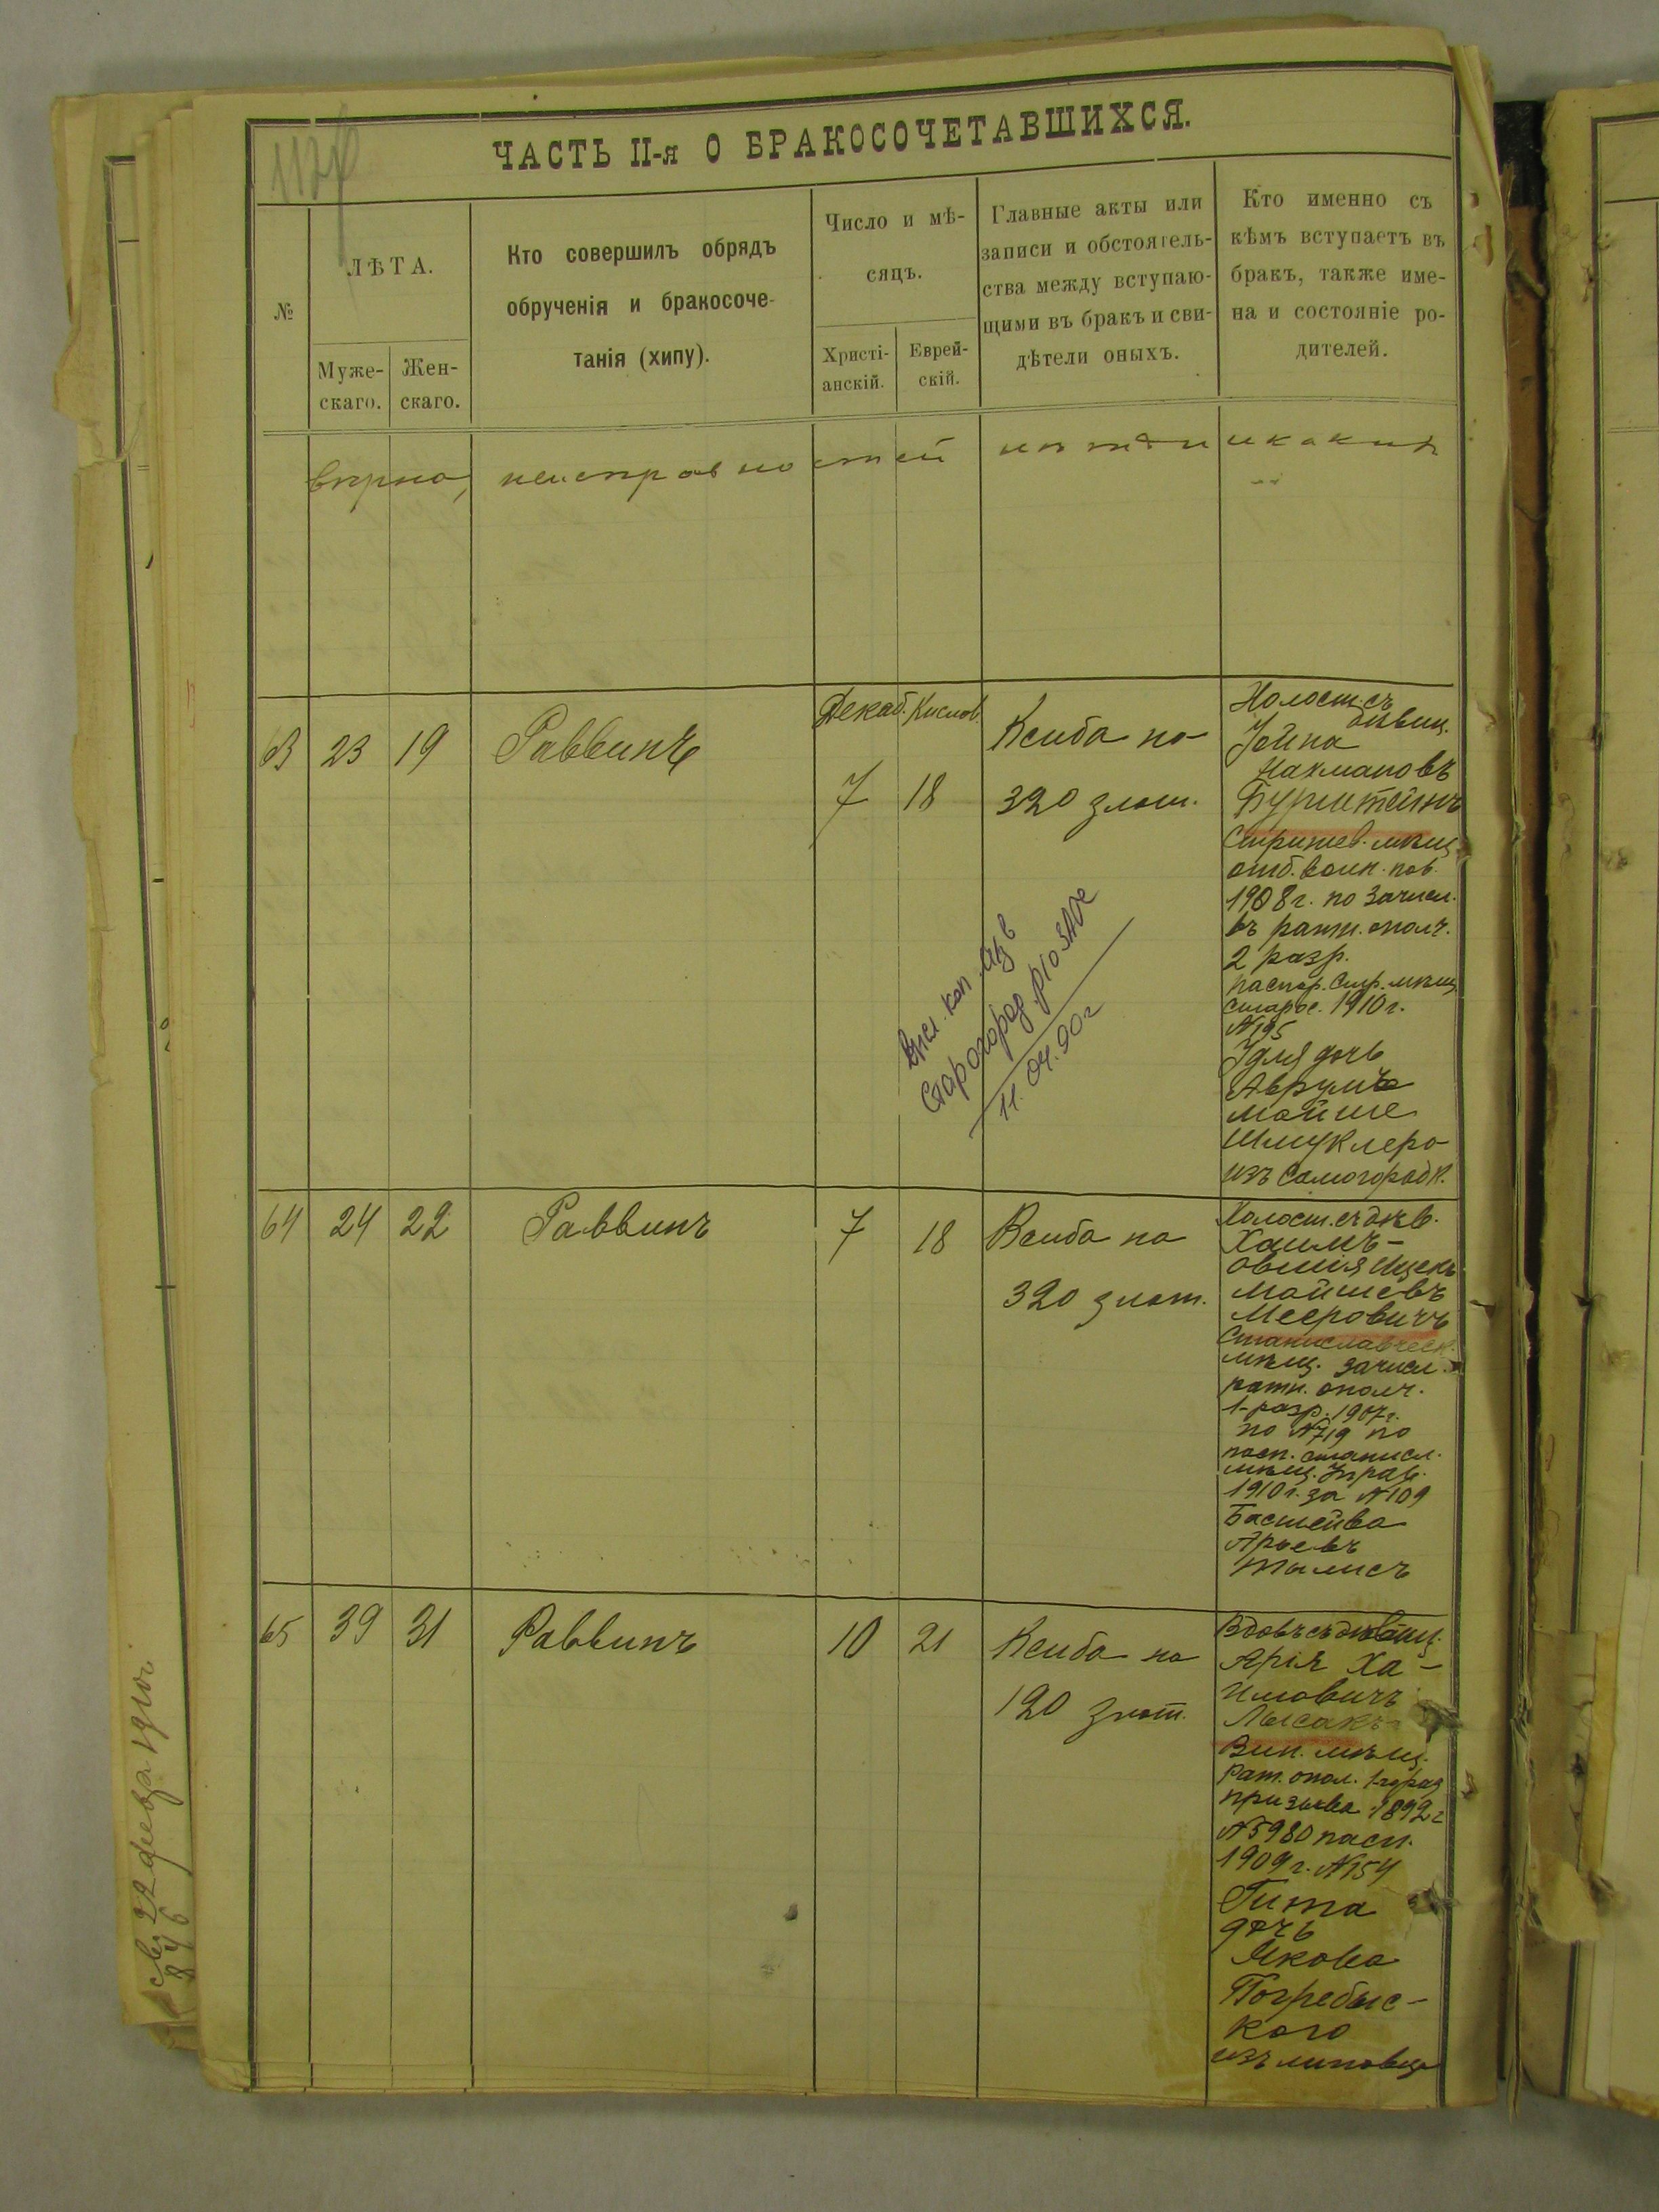 ЧАСТЬ II-я О БРАКОСОЧЕТАВШИХСЯ.
№
ЛѢТА.
Муже-
скаго.
Жен-
скаго.
Кто совершилъ обрядъ
обрученія и бракосоче-
танія (хипу).
Число и мѣ-
сяцъ.
Христі-
анскій.
Еврей-
скій.
Главные акты или
записи и обстоятель-
ства между вступаю-
щими въ бракъ и сви-
дѣтели оныхъ.
Кто именно съ
кѣмъ вступаетъ въ
бракъ, также име-
на и состояніе ро-
дителей.
вѣрно, неисправностей нѣтъ никакихъ
63 23 19 Раввинъ
Декаб. Кислов.
7 18
Ксиба на
320 злот.
Холост. съ
дѣвиц.
Нахмановъ
Бурштейнъ
Стрижев. мѣщ.
отб. воин. пов.
1908 г. по зачисл.
въ ратн. ополч.
2 разр.
паспор. Стр. мѣщ.
старос. 1910 г.
№195
Удля дочь
Аврумъ
Мойше
Шмуклера
изъ Самогородк.
Старогород
11.04.90 г
64 24 22 Раввинъ 7 18
Ксиба на
320 злот.
Холост. съ дѣв.
Хаимъ-
Овшія Ицекъ
Мойшевъ
Мееровичъ
Станиславческ.
мѣщ. зачисл.
ратн. ополч.
1-разр. 1907 г.
по №719 по
посп. станисл.
мѣщ. управ.
1910 г. за №109
Басшейва
Арьевъ
65 39 31 Раввинъ 10 21
Ксиба на
120 злот.
Вдовъ съ дѣвиц.
Арія Ха-
имовичъ
Лысакъ
Вин. мѣщ.
рат. опол. 1-го раз
призыва 1892 г
№5980 пасп.
1909 г. №154
Гитя
дочь
Якова
Погребыс-
кого
изъ Липовца
22 февр 1910 г